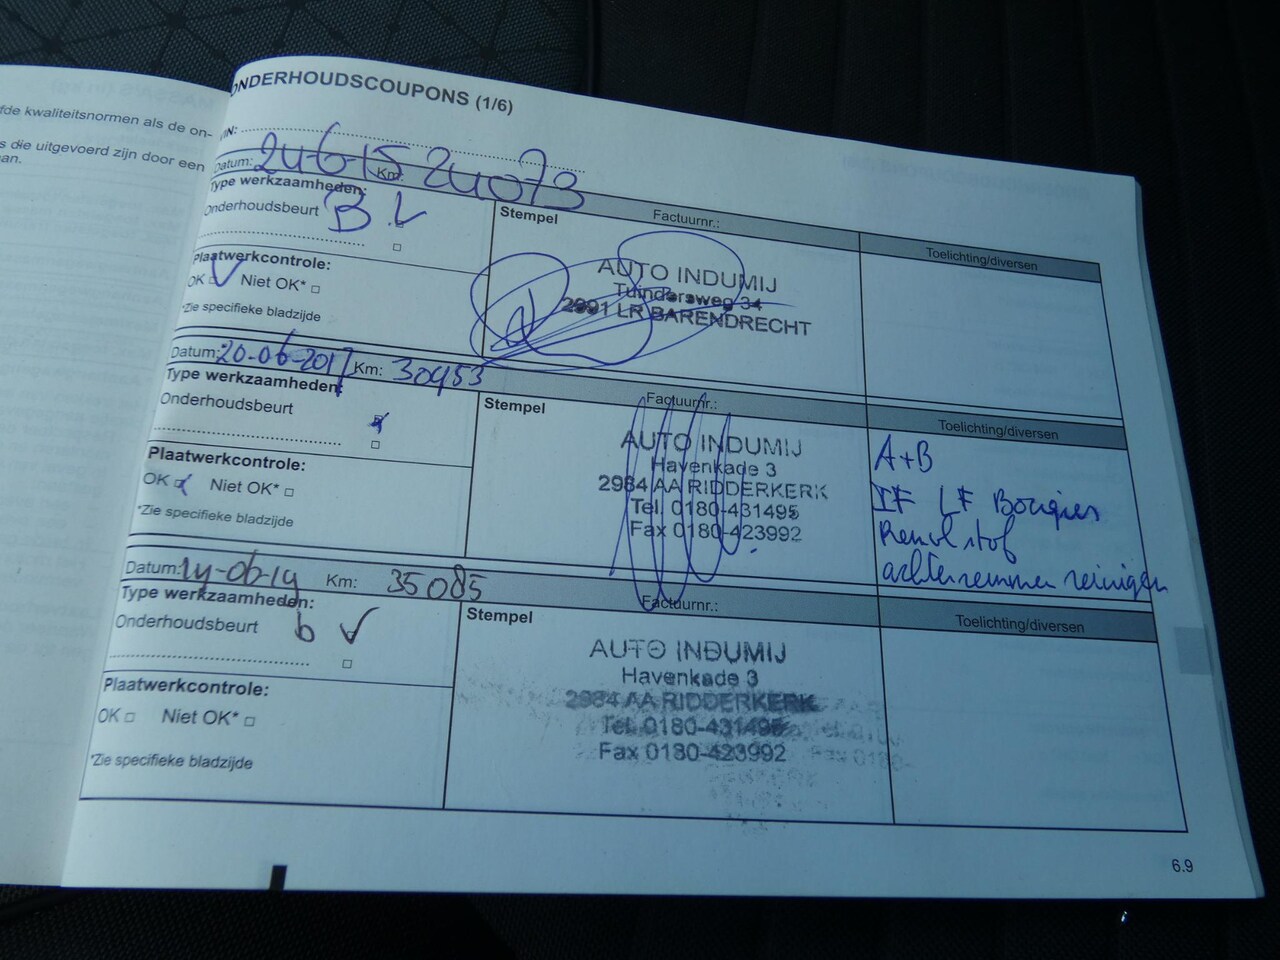 fde kwaliteitsnormen als de on-
s die uitgevoerd zijn door een
an.
ONDERHOUDSCOUPONS (1/6)
VIN:
Datum: 24-6-15 Km: 24073
Type werkzaamheden:
Onderhoudsbeurt B
Plaatwerkcontrole:
OK Niet OK*
*Zie specifieke bladzijde
Stempel
Factuurnr.:
AUTO INDUMIJ
Tuindersweg 34
2991 LR BARENDRECHT
Toelichting/diversen
Datum: 20-06-2017 Km: 30953
Type werkzaamheden:
Onderhoudsbeurt
Plaatwerkcontrole:
OK Niet OK*
*Zie specifieke bladzijde
Stempel
Factuurnr.:
AUTO INDUMIJ
Havenkade 3
2984 AA RIDDERKERK
Tel. 0180-431495
Fax 0180-423992
Toelichting/diversen
A+B
IF LF Bougies
Remvlstof
achterremmen reinigen
Datum: 14-06-19 Km: 35085
Type werkzaamheden:
Onderhoudsbeurt b
Plaatwerkcontrole:
OK Niet OK*
*Zie specifieke bladzijde
Stempel
Factuurnr.:
AUTO INDUMIJ
Havenkade 3
2984 AA RIDDERKERK
Tel. 0180-431495
Fax 0180-423992
Toelichting/diversen
6.9